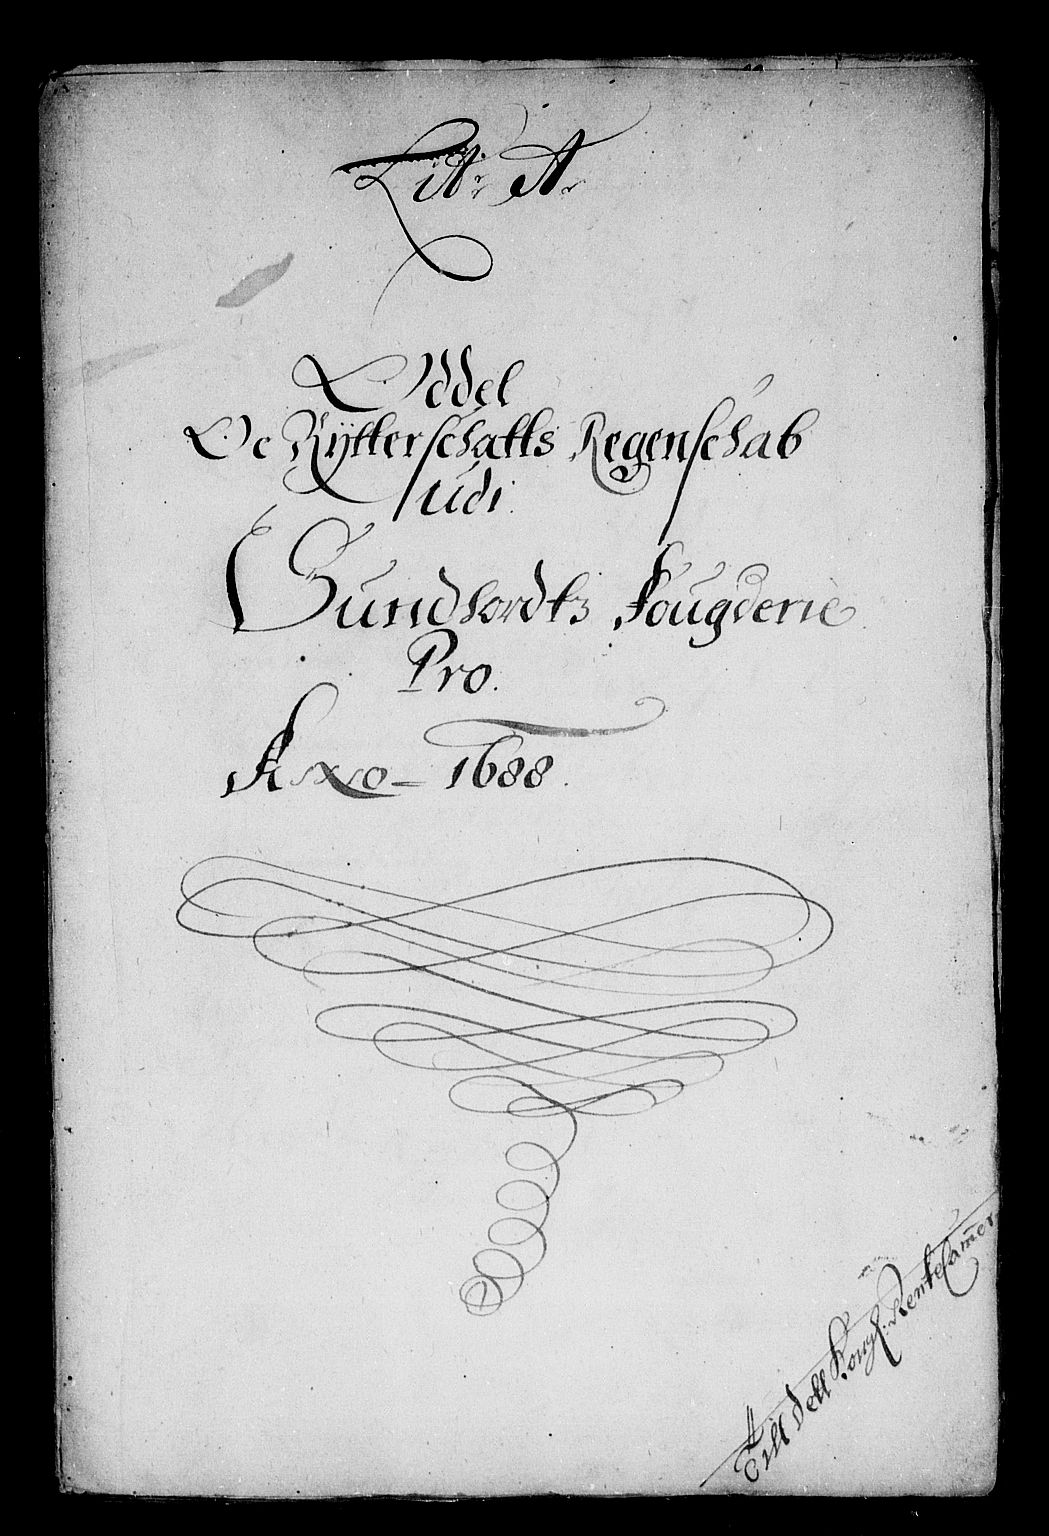 Lit: A:
Oddel
Oc Rytterschatts Regenschab
udi
Sundhordtz Fougderie
Pro.
Anno 1688.
Till dett Kongl: Rentecamer